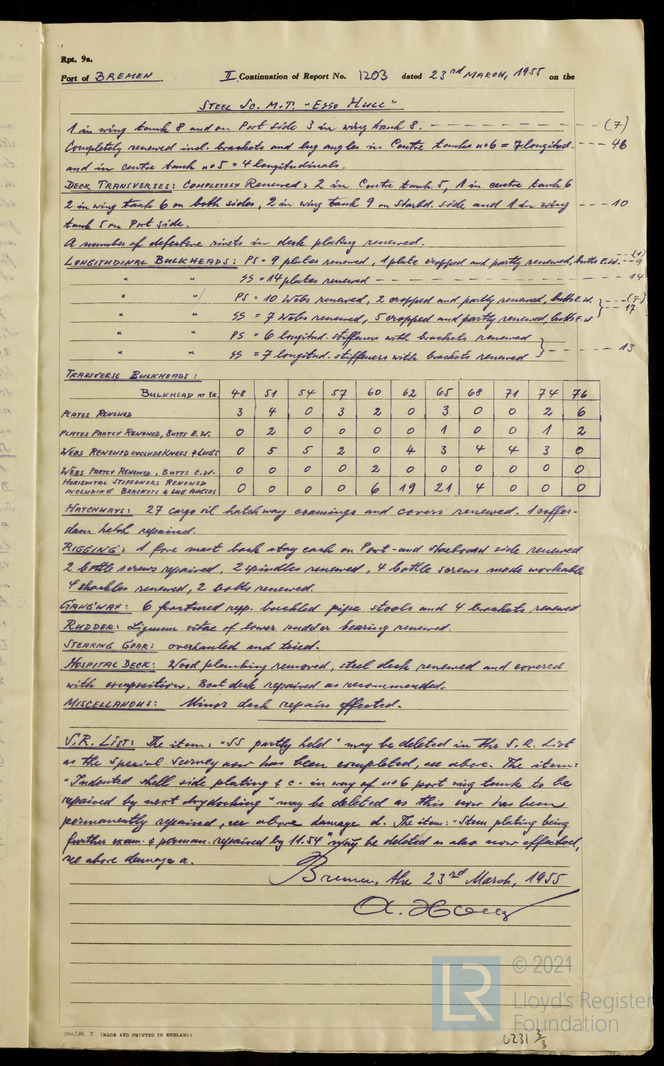 Rpt. 9a.
Port of BREMEN II Continuation of Report No. 1203 dated 23rd MARCH, 1955 on the
STEEL Sc. M.T. "ESSO HULL"
1 in wing tank 8 and on Port side 3 in wing tank 8. - - - (7)
Completely renewed incl. brackets and lug angles in Centre tanks no 6 = 7 longitud. - - - 46
and in centre tank no 5 = 4 longitudinals.
DECK TRANSVERSES: COMPLETELY RENEWED: 2 in Centre tank 5, 1 in centre tank 6
2 in wing tank 6 on both sides, 2 in wing tank 9 on Starbd. side and 1 in wing - - - 10
tank 5 on Port side.
A number of defective rivets in deck plating renewed.
LONGITUDINAL BULKHEADS: PS = 9 plates renewed, 1 plate cropped and partly renewed, butts E.W. - - 9
" " SS = 14 plates renewed - - - 14
" " PS = 10 Webs renewed, 2 cropped and partly renewed, butts E.W. } - - - (8)
" " SS = 7 Webs renewed, 5 cropped and partly renewed, butts E.W. } 17
" " PS = 6 longitud. stiffeners with brackets renewed }
" " SS = 7 longitud. stiffeners with brackets renewed } - - - 13
TRANSVERSE BULKHEADS:
BULKHEAD AT FR. 48 51 54 57 60 62 65 68 71 74 76
PLATES RENEWED 3 4 0 3 2 0 3 0 0 2 6
PLATES PARTLY RENEWED, BUTTS E.W. 0 2 0 0 0 0 1 0 0 1 2
WEBS RENEWED INCLUDE KNEES & LUGS 0 5 5 2 0 4 3 4 4 3 0
WEBS PARTLY RENEWED, BUTTS E.W. 0 0 0 0 2 0 0 0 0 0 0
HORIZONTAL STIFFENERS RENEWED
INCLUDING BRACKETS & LUG ANGLES 0 0 0 0 6 19 21 4 0 0 0
HATCHWAYS: 27 cargo oil hatchway coamings and covers renewed. 1 coffer-
dam hatch repaired.
RIGGING: 1 fore mast back stay each on Port- and starboard side renewed
2 bottle screws repaired, 2 spindles renewed, 4 bottle screws made workable
4 shackles renewed, 2 bolts renewed.
GANGWAY: 6 fractured resp. buckled pipe stools and 4 brackets renewed
RUDDER: Lignum vitae of lower rudder bearing renewed.
STEARING GEAR: overhauled and tried.
HOSPITAL DECK: Wood planking removed, steel deck renewed and covered
with composition. Boat deck repaired as recommended.
MISCELLANOUS: Minor deck repairs effected.
S.R. LIST: The item: "SS partly held" may be deleted in the S.R. List
as the Special Survey now has been completed, see above. The item:
"Indented shell side plating & c. in way of no 6 port wing tank to be
repaired by next drydocking" may be deleted as this now has been
permanently repaired, see above damage d. The item: "Stem plating being
further exam. & perman. repaired by 11.54" may be deleted as also now effected,
see above damage a.
Bremen, the 23rd March, 1955
200,7.50. T. (MADE AND PRINTED IN ENGLAND)
LR © 2021
Lloyd's Register
Foundation
0231 3/3